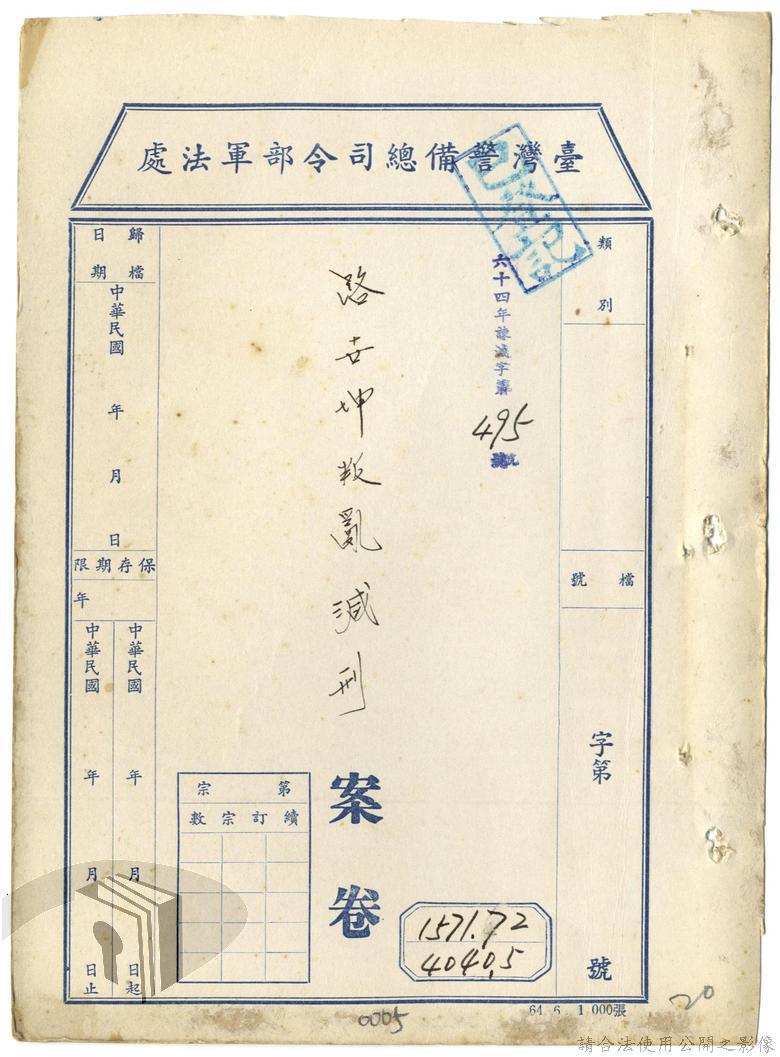 臺灣警備總司令部軍法處
已登記
類別
檔號
字第
號
六十四年諫減字第
495
號
路世坤叛亂減刑
案卷
歸檔日期
中華民國 年 月 日
保存期限
年
中華民國 年 月 日起
中華民國 年 月 日止
第 宗
續訂宗數
1571.72
4040.5
64 6 1.000張
0005
20
請合法使用公開之影像